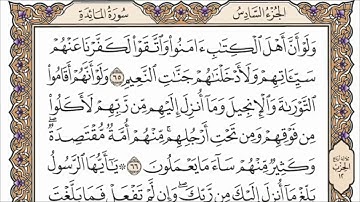 الجزء السادس سورة المائدة
وَلَوْ أَنَّ أَهْلَ ٱلْكِتَٰبِ ءَامَنُوا۟ وَٱتَّقَوْا۟ لَكَفَّرْنَا عَنْهُمْ
سَيِّـَٔاتِهِمْ وَلَأَدْخَلْنَٰهُمْ جَنَّٰتِ ٱلنَّعِيمِ ٦٥ وَلَوْ أَنَّهُمْ أَقَامُوا۟
ٱلتَّوْرَىٰةَ وَٱلْإِنجِيلَ وَمَآ أُنزِلَ إِلَيْهِم مِّن رَّبِّهِمْ لَأَكَلُوا۟
مِن فَوْقِهِمْ وَمِن تَحْتِ أَرْجُلِهِم ۚ مِّنْهُمْ أُمَّةٌ مُّقْتَصِدَةٌ ۖ
وَكَثِيرٌ مِّنْهُمْ سَآءَ مَا يَعْمَلُونَ ٦٦ ۞ يَٰٓأَيُّهَا ٱلرَّسُولُ
بَلِّغْ مَآ أُنزِلَ إِلَيْكَ مِن رَّبِّكَ ۖ وَإِن لَّمْ تَفْعَلْ فَمَا بَلَّغْتَ
الحزب
١٢